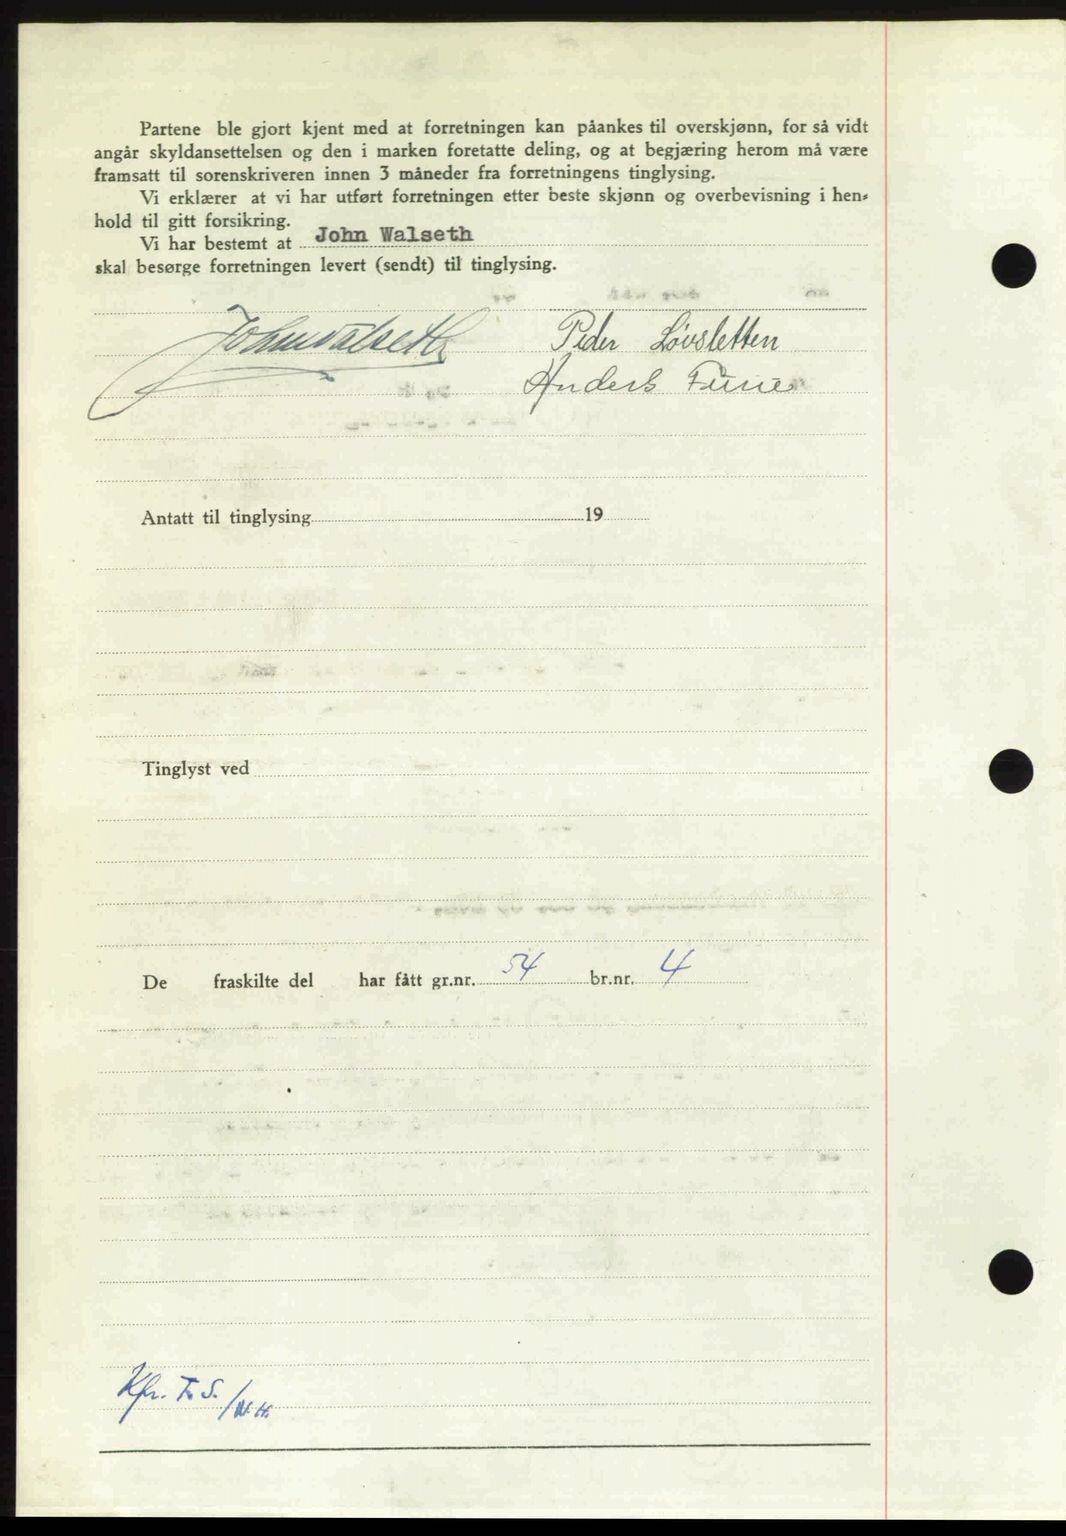 Partene ble gjort kjent med at forretningen kan påankes til overskjønn, for så vidt
angår skyldansettelsen og den i marken foretatte deling, og at begjæring herom må være
framsatt til sorenskriveren innen 3 måneder fra forretningens tinglysing.
Vi erklærer at vi har utført forretningen etter beste skjønn og overbevisning i hen-
hold til gitt forsikring.
Vi har bestemt at John Walseth
skal besørge forretningen levert (sendt) til tinglysing.
John Walseth Peder Løvsletten
Anders Furu
Antatt til tinglysing 19
Tinglyst ved
De fraskilte del har fått gr.nr. 54 br.nr. 4
Kfr. T. S. / N. H.